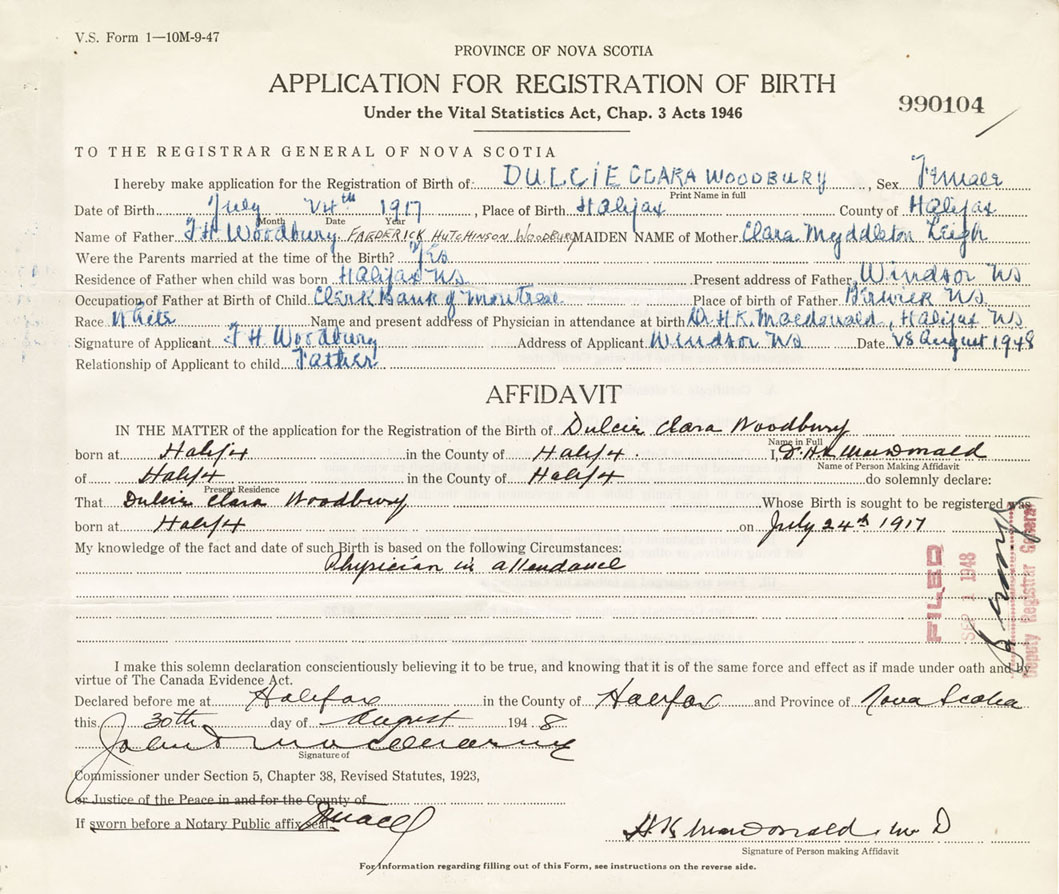 V.S. Form 1—10M-9-47
PROVINCE OF NOVA SCOTIA
APPLICATION FOR REGISTRATION OF BIRTH
990104
Under the Vital Statistics Act, Chap. 3 Acts 1946
TO THE REGISTRAR GENERAL OF NOVA SCOTIA
I hereby make application for the Registration of Birth of DULCIE CLARA WOODBURY, Sex Female
Print Name in full
Date of Birth July 24th 1917, Place of Birth Halifax County of Halifax
Month Date Year
Name of Father F H Woodbury FREDERICK HUTCHINSON WOODBURY MAIDEN NAME of Mother Clara Myddleton Leigh
Were the Parents married at the time of the Birth? Yes
Residence of Father when child was born Halifax NS Present address of Father Windsor NS
Occupation of Father at Birth of Child Clerk Bank of Montreal Place of birth of Father Berwick NS
Race White Name and present address of Physician in attendance at birth Dr H.K. Macdonald, Halifax NS
Signature of Applicant F H Woodbury Address of Applicant Windsor NS Date 28 August 1948
Relationship of Applicant to child Father
AFFIDAVIT
IN THE MATTER of the application for the Registration of the Birth of Dulcie Clara Woodbury
Name in Full
born at Halifx in the County of Halifx. I, Dr. H.K. MacDonald
Name of Person Making Affidavit
of Halifx in the County of Halifx do solemnly declare:
Present Residence
That Dulcie Clara Woodbury Whose Birth is sought to be registered was
born at Halifx on July 24th 1917
My knowledge of the fact and date of such Birth is based on the following Circumstances:
Physician in attendance
FILED
SEP 1 1948
Deputy Registrar General
I make this solemn declaration conscientiously believing it to be true, and knowing that it is of the same force and effect as if made under oath and by
virtue of The Canada Evidence Act.
Declared before me at Halifax in the County of Halifax and Province of Nova Scotia
this 30th day of August 1948
Signature of
Commissioner under Section 5, Chapter 38, Revised Statutes, 1923,
or Justice of the Peace in and for the County of
If sworn before a Notary Public affix seal.
H K MacDonald M D
Signature of Person making Affidavit
For Information regarding filling out of this Form, see instructions on the reverse side.